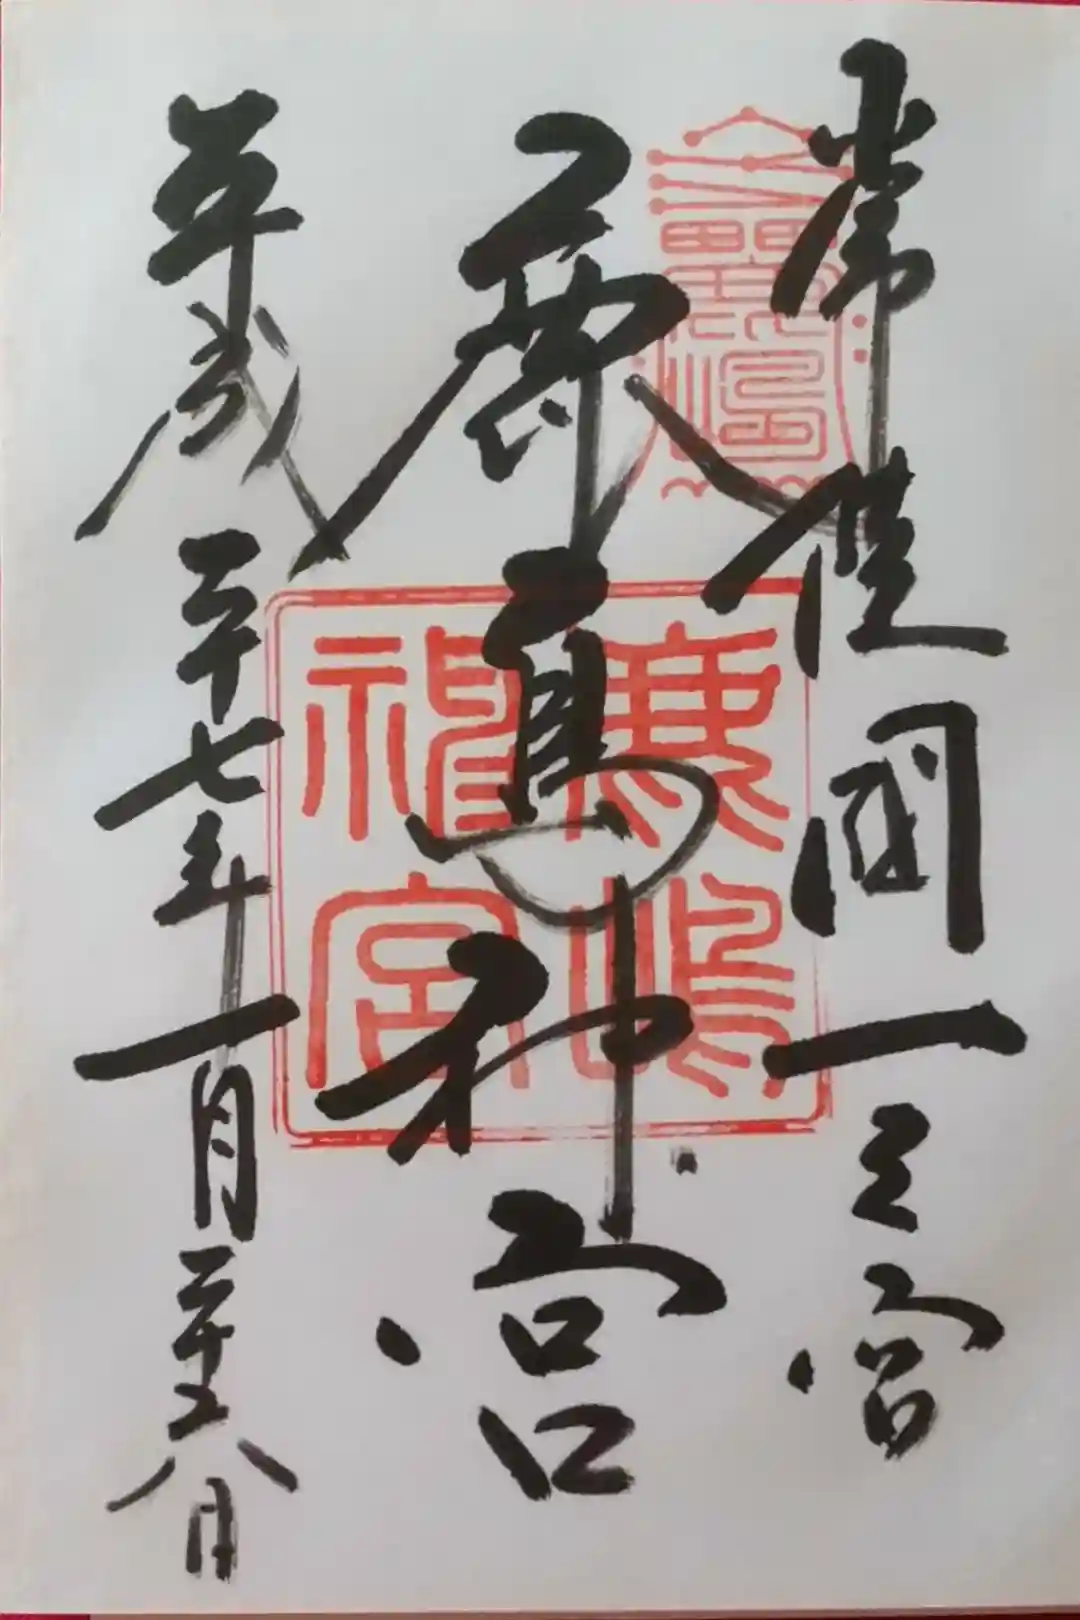 常陸国一之宮
鹿島神宮
鹿嶋神宮
平成二十七年一月二十八日